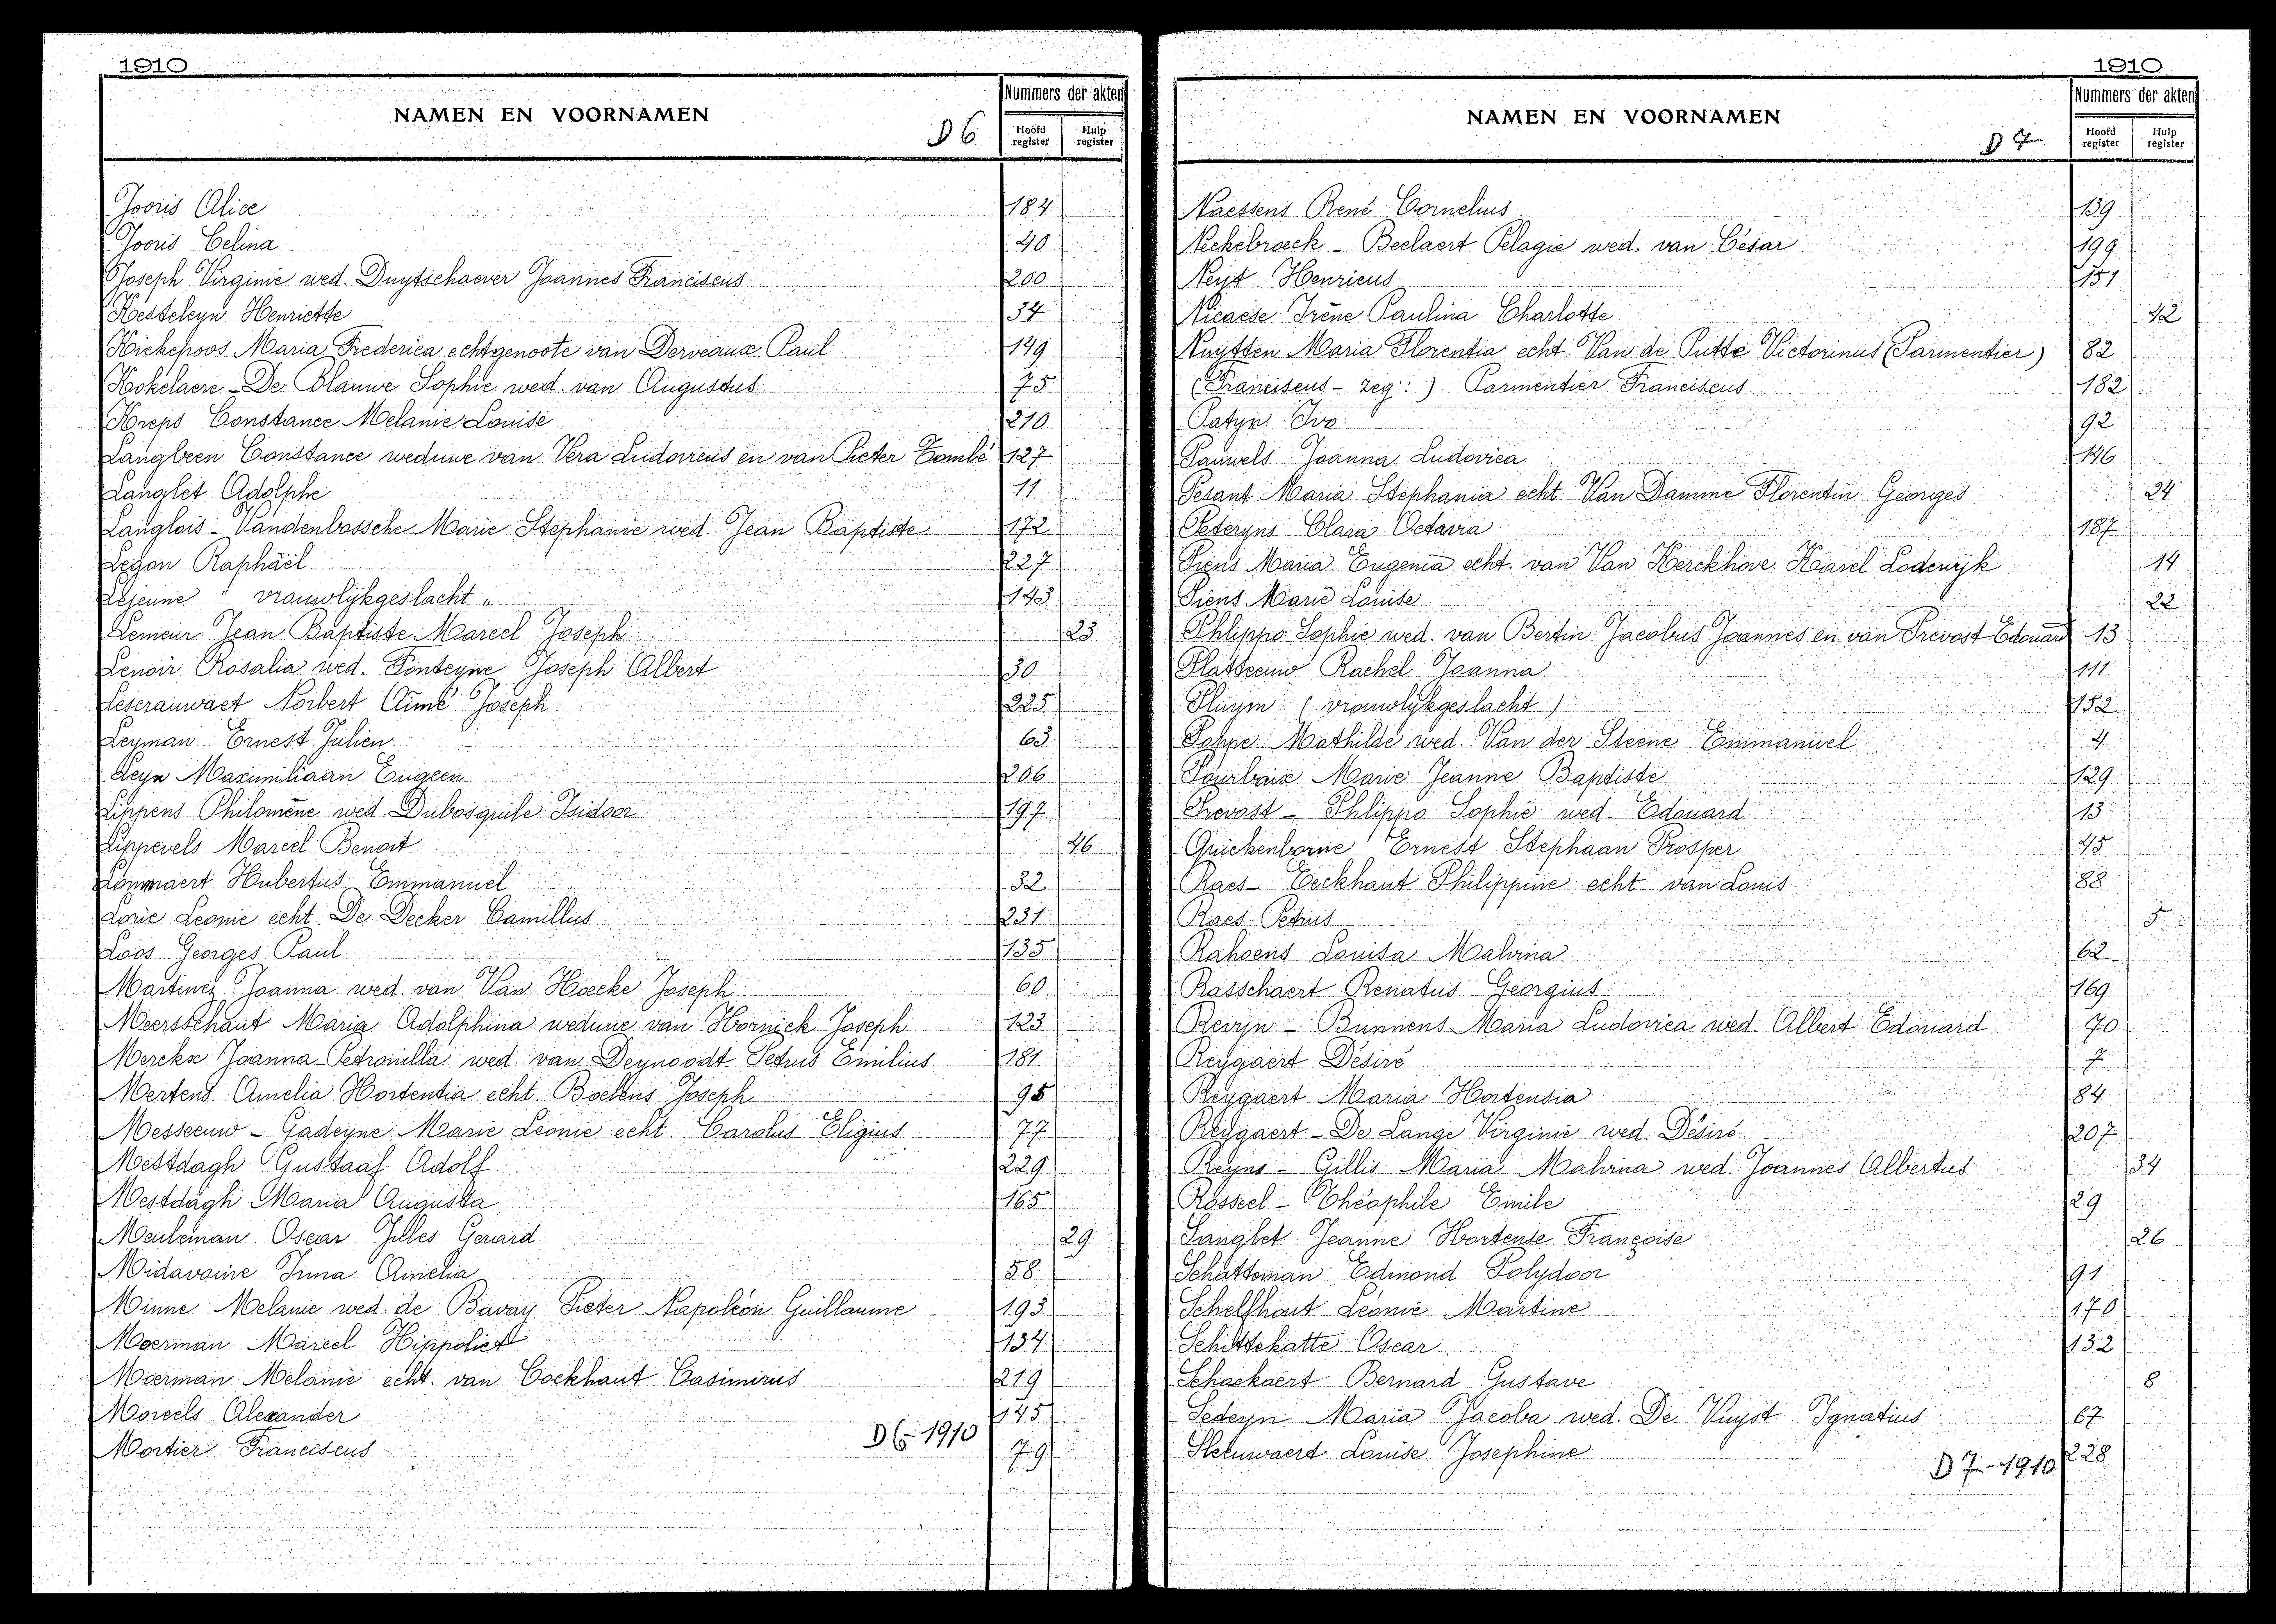 1910
NAMEN EN VOORNAMEN
D 6
Nummers der akten
Hoofd register
Hulp register
Jooris Alice 184
Jooris Celina 40
Joseph Virginie wed. Duytschaever Joannes Franciscus 200
Kesteleyn Henriette 34
Kickepoos Maria Frederica echtgenoote van Derveaux Paul 149
Kokelaere - De Blauwe Sophie wed. van Augustus 75
Kreps Constance Melanie Louise 210
Langbeen Constance weduwe van Vera Ludovicus en van Pieter Tombé 127
Langlet Adolphe 11
Langlois - Vandenbossche Marie Stephanie wed. Jean Baptiste 172
Legon Raphäel 227
Lejeune " vrouwlijkgeslacht " 143
Lemeur Jean Baptiste Marcel Joseph 23
Lenoir Rosalia wed. Fonteyne Joseph Albert 30
Leserauwaet Norbert Aimé Joseph 225
Leyman Ernest Julien 63
Leyn Maximiliaan Eugeen 206
Lippens Philomène wed. Dubosquile Isidoor 197
Lippevels Marcel Benoit 46
Lommaert Hubertus Emmanuel 32
Loric Leonie echt. De Decker Camillus 231
Loos Georges Paul 135
Martinez Joanna wed. van Van Hoecke Joseph 60
Meersschaut Maria Adolphina weduwe van Hornick Joseph 123
Merckx Joanna Petronilla wed. van Deynoodt Petrus Emilius 181
Mertens Amelia Hortentia echt. Boelens Joseph 95
Messeeuw - Gadeyne Marie Leonie echt. Carolus Eligius 77
Mestdagh Gustaaf Adolf 229
Mestdagh Maria Augusta 165
Meuleman Oscar Jilles Gerard 29
Midavaine Irma Amelia 58
Minne Melanie wed. de Bavay Pieter Napoléon Guillaume 193
Moerman Marcel Hippoliet 134
Moerman Melanie echt. van Cockhaut Casimirus 219
Moreels Alexander 145
Mortier Franciscus 79
D 6 - 1910
1910
NAMEN EN VOORNAMEN
D 7
Nummers der akten
Hoofd register
Hulp register
Naessens René Cornelius 139
Neckebroeck - Beelaert Pelagie wed. van César 199
Neyt Henricus 151
Nicaese Irène Paulina Charlotte 42
Nuytten Maria Florentia echt. Van de Putte Victorinus (Parmentier) 82
(Franciscus - zeg: ) Parmentier Franciscus 182
Patyn Ivo 92
Pauwels Joanna Ludovica 146
Pesant Maria Stephania echt. Van Damme Florentin Georges 24
Peteryns Clara Octavia 187
Piens Maria Eugenia echt. van Van Kerckhove Karel Lodewijk 14
Piens Marie Louise 22
Phlippo Sophie wed. van Bertin Jacobus Joannes en van Prevost Edouard 13
Platteeuw Rachel Joanna 111
Pluym ( vrouwlijkgeslacht ) 152
Poppe Mathilde wed. Van der Steene Emmanüel 4
Pourbaix Marie Jeanne Baptiste 129
Prevost - Phlippo Sophie wed. Edouard 13
Quickenborne Ernest Stephaan Prosper 45
Raes - Eeckhaut Philippine echt. van Louis 88
Raes Petrus 5
Rahoens Louisa Malvina 62
Rasschaert Renatus Georgius 169
Revyn - Bunnens Maria Ludovica wed. Albert Edouard 70
Reygaert Désiré 7
Reygaert Maria Hortensia 84
Reygaert - De Lange Virginie wed. Désiré 207
Reyns - Gillis Maria Malvina wed. Joannes Albertus 34
Rosseel - Théophile Emile 29
Sanglet Jeanne Hortense Françoise 26
Schatteman Edmond Polydoor 91
Schelfhout Léonie Martine 170
Schittekatte Oscar 132
Schockaert Bernard Gustave 8
Sedeyn Maria Jacoba wed. De Vuyst Ignatius 67
Sleeuwaert Louise Josephine 228
D 7 - 1910